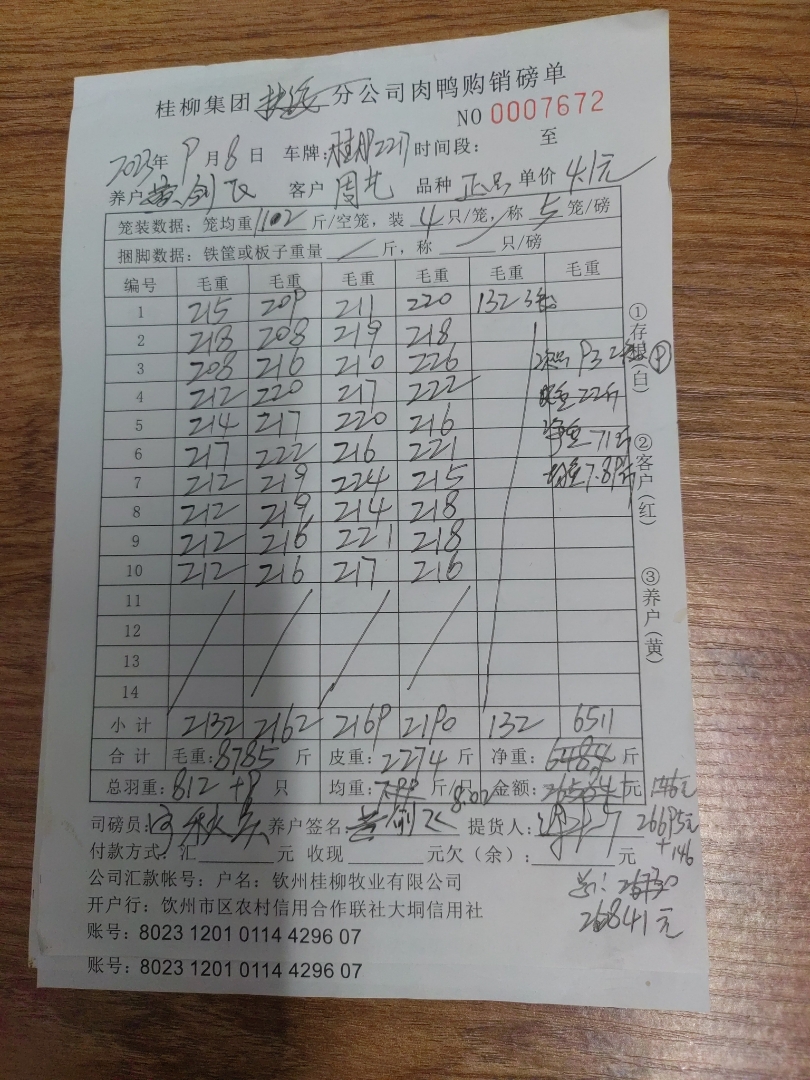 桂柳集团 扶绥 分公司肉鸭购销磅单
NO 0007672
2023年 9 月 8 日 车牌: 桂 2217 时间段: 至
养户 黄剑飞 客户 周 品种 正品 单价 4.1元
笼装数据: 笼均重 11.02 斤/空笼, 装 4 只/笼, 称 5 笼/磅
捆脚数据: 铁筐或板子重量 斤, 称 只/磅
编号 毛重 毛重 毛重 毛重 毛重 毛重
1 215 209 211 220 132 3
2 218 208 219 218
3 208 216 210 226 93 2
4 212 220 217 222 皮重22斤
5 214 217 220 216 净重 71斤
6 217 222 216 221 均重7.89斤
7 212 219 224 215
8 212 219 214 218
9 212 216 221 218
10 212 216 217 216
11
12
13
14
小计 2132 2162 2169 2190 132 6511
合计 毛重: 8785 斤 皮重: 2274 斤 净重: 斤
总羽重: 812 +9 只 均重: 斤/只 8.02 金额: 元 146元
司磅员: 养户签名: 黄剑飞 提货人: 26695元
+146
付款方式: 汇 元 收现 元欠(余): 元
公司汇款帐号: 户名: 钦州桂柳牧业有限公司
开户行: 钦州市区农村信用合作联社大垌信用社
26841元
账号: 8023 1201 0114 4296 07
账号: 8023 1201 0114 4296 07
①存根(白)
②客户(红)
③养户(黄)